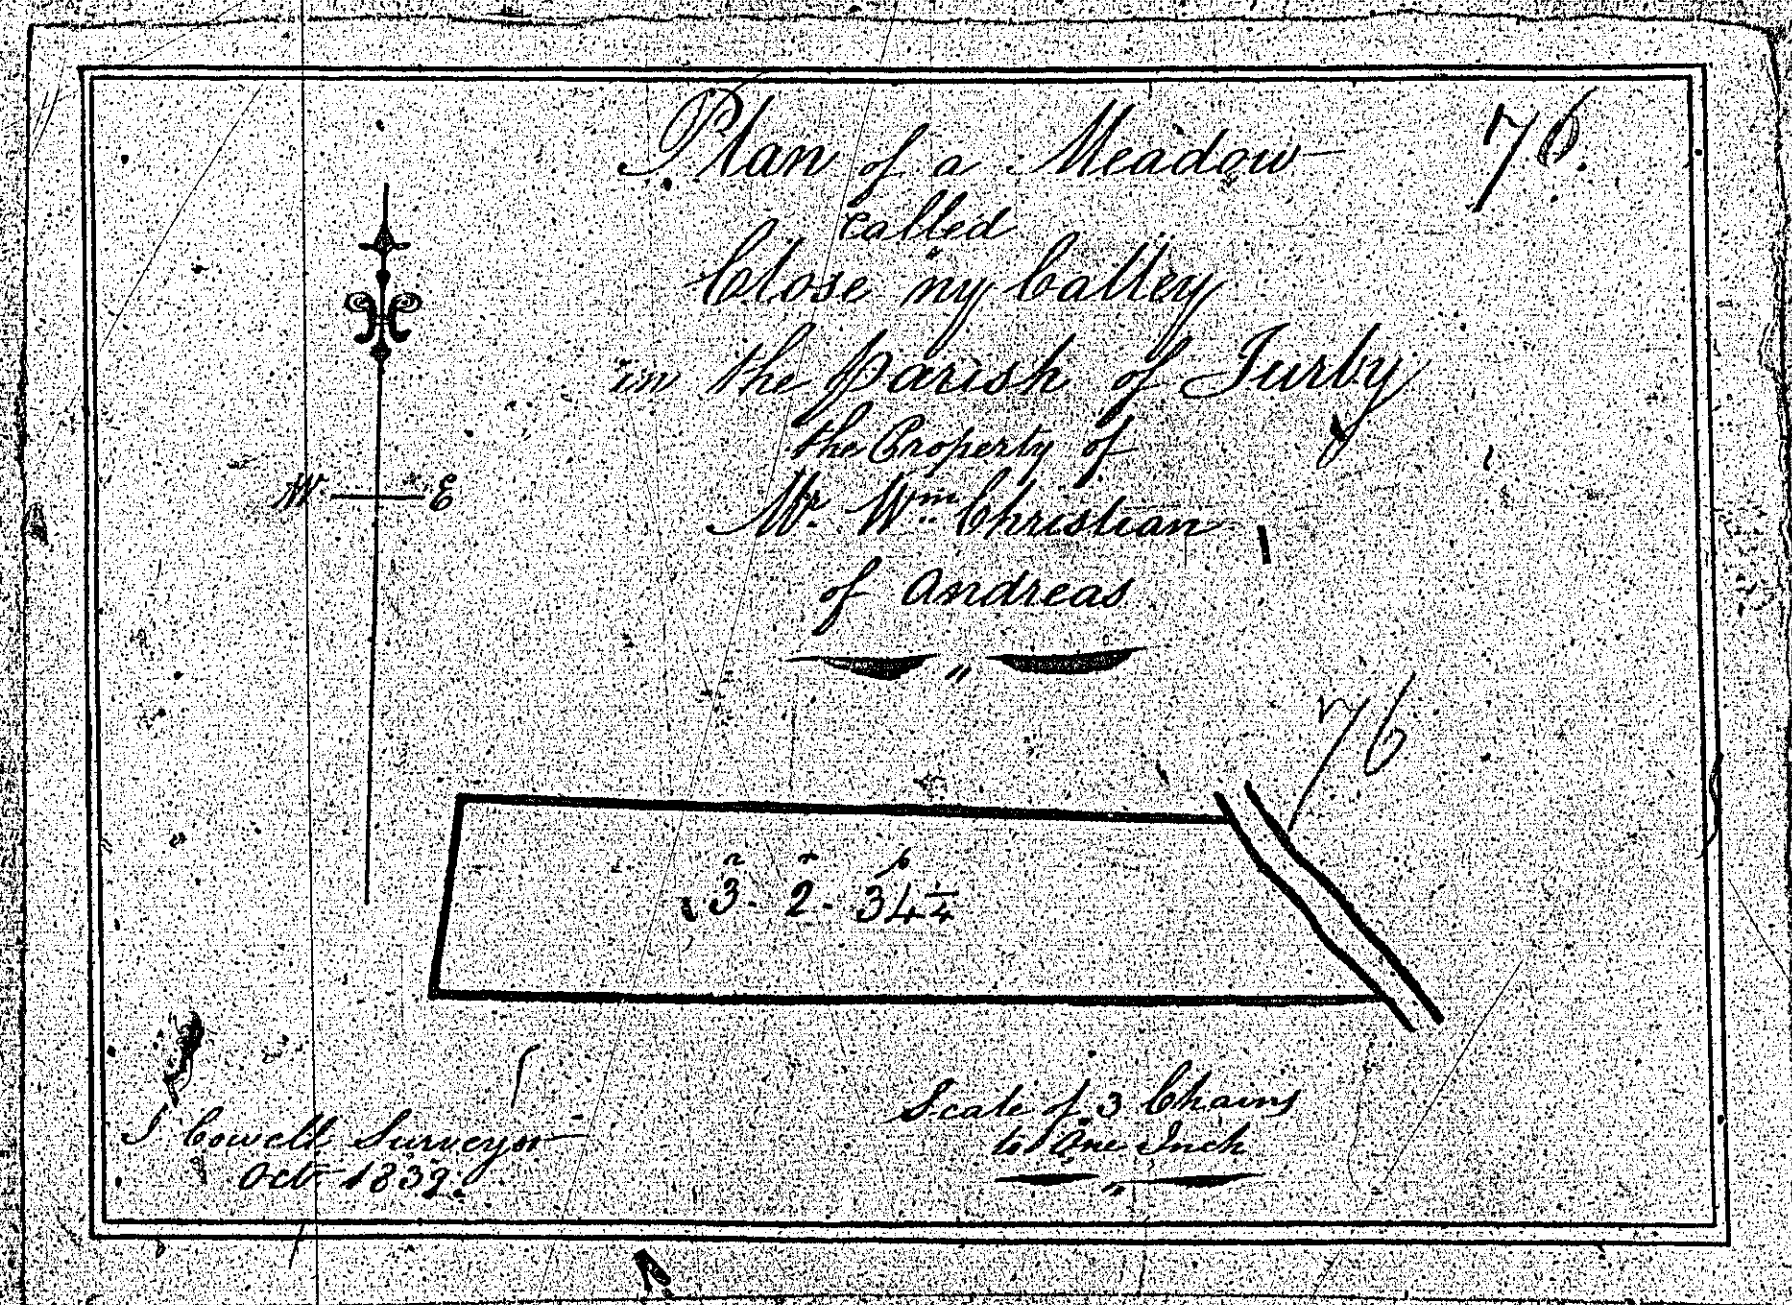 Plan of a Meadow
76.
called
Close ny Calley
in the Parish of Jurby
the Property of
Mr. Wm. Christian
of Andreas
W E
76
a r p
3. 2. 34 1/4
J Cowell Surveyor
Oct. 1839.
Scale of 3 Chains
to One Inch